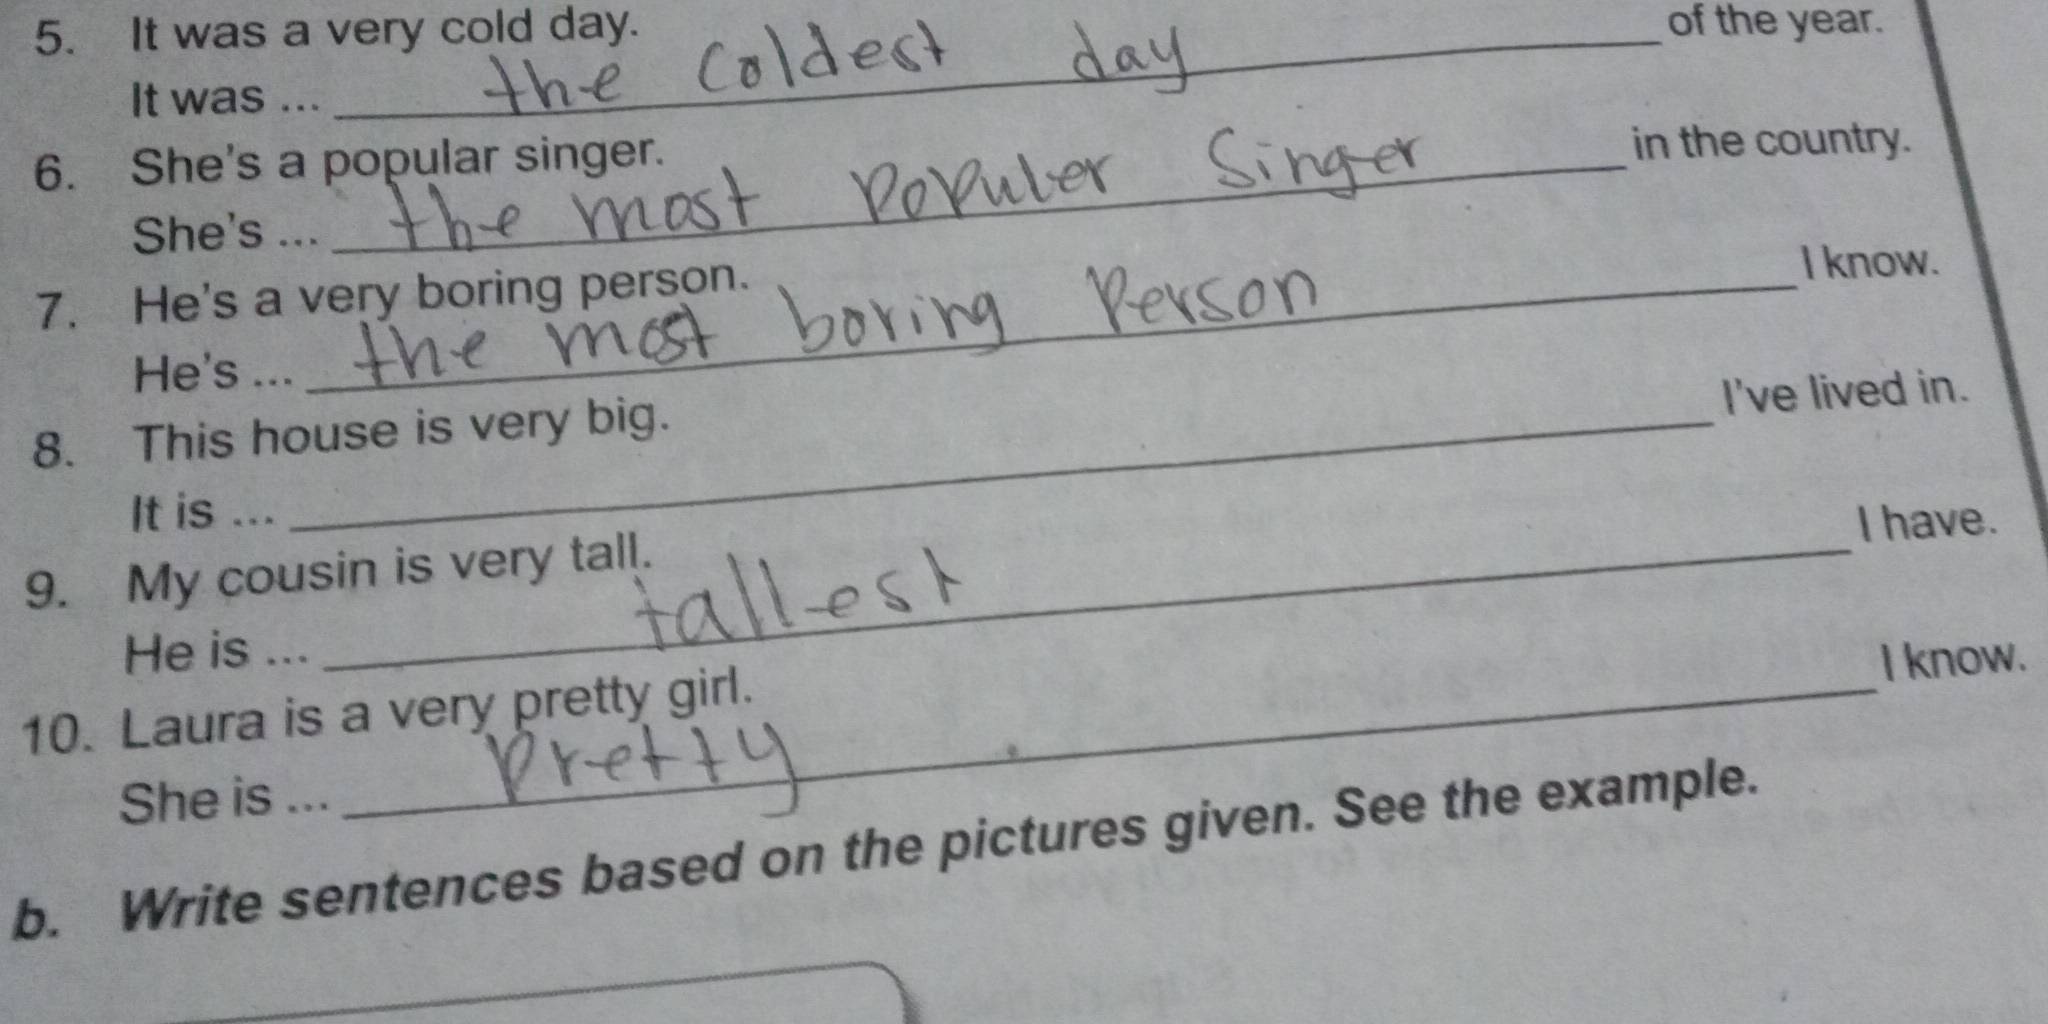 5. It was a very cold day.
It was ... the coldest day of the year.
6. She's a popular singer.
She's ... the most populer Singer in the country.
7. He's a very boring person.
He's ... the most boring Person I know.
8. This house is very big.
It is ... I've lived in.
9. My cousin is very tall.
He is ... tallest I have.
10. Laura is a very pretty girl.
She is ... pretty I know.
b. Write sentences based on the pictures given. See the example.